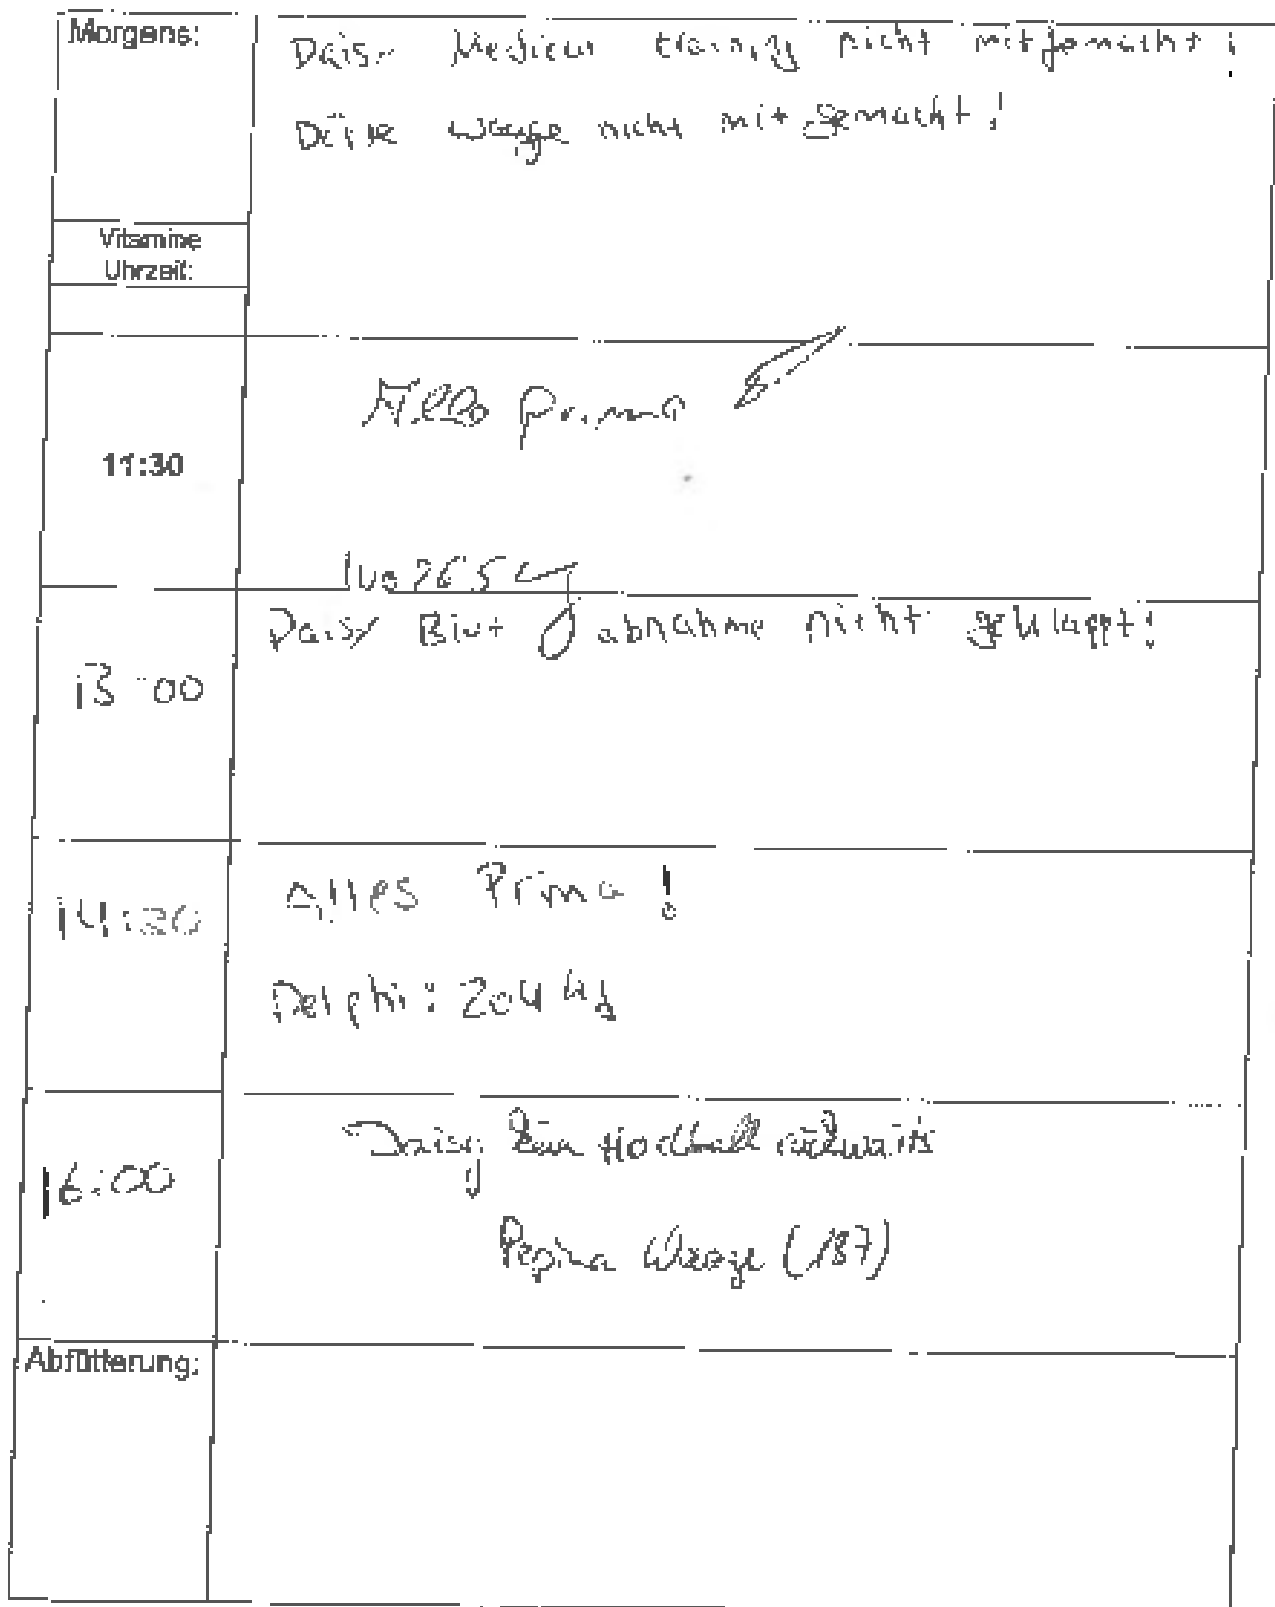 Morgens:
Daisy Medical training nicht mitgemacht!
Dörte Waage nicht mit gemacht!
Vitamine
Uhrzeit:
Alles prima
11:30
Ivo 265
Daisy Blut abnahme nicht geklappt!
13:00
Alles Prima!
14:20
Delphi: 204 kg
Daisy Hochball rückwärts
16:00
Pepina Waage (187)
Abfütterung: